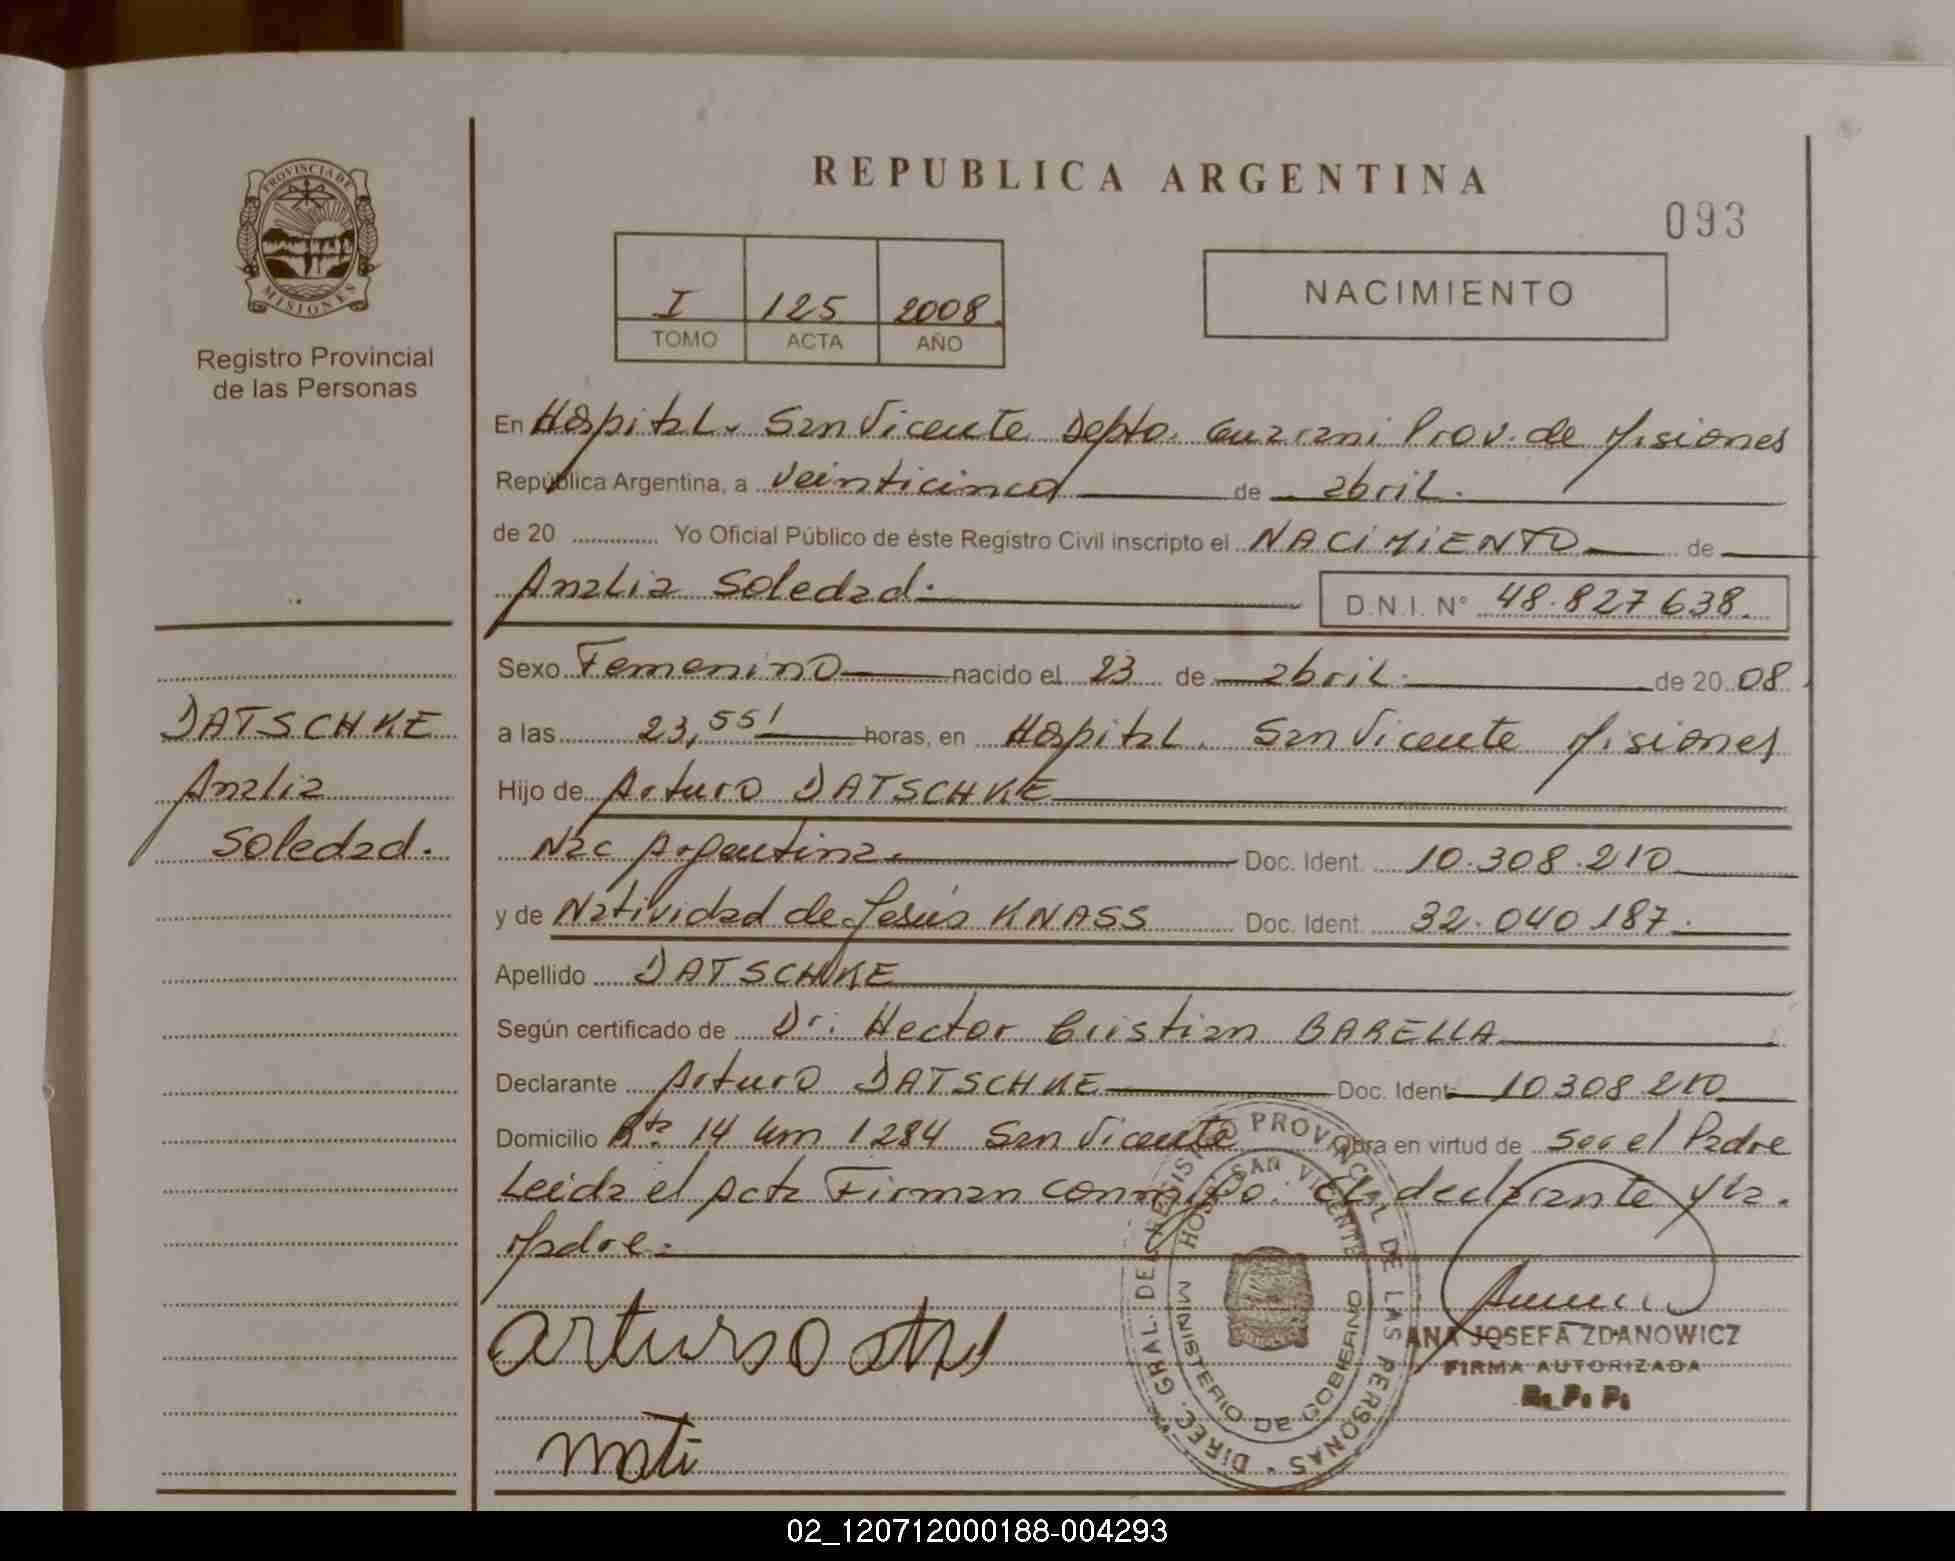 REPUBLICA ARGENTINA
093
PROVINCIA DE
MISIONES
Registro Provincial
de las Personas
I 125 2008.
TOMO ACTA AÑO
NACIMIENTO
En Hospital. San Vicente Depto. Guarani Prov. de Misiones
República Argentina, a veinticinco de abril.
de 20 .............. Yo Oficial Público de éste Registro Civil inscripto el NACIMIENTO de
Analia Soledad. D.N.I. N° 48.827638.
Sexo Femenino nacido el 23 de abril. de 20 08
a las 23,55' horas, en Hospital. San Vicente Misiones
Hijo de Arturo DATSCHKE
Nac Argentina. Doc. Ident. 10.308.210
y de Natividad de Jesús KNASS Doc. Ident. 32.040.187.
Apellido DATSCHKE
Según certificado de Dr. Hector Cristian BARELLA
Declarante Arturo DATSCHKE Doc. Ident. 10308210
Domicilio Rta. 14 km 1284 San Vicente Obra en virtud de ser el Padre
Leida el Acta Firman conmigo. El declarante y la.
Madre.
DATSCHKE
Analia
Soledad.
arturo
nati
DIREC. GRAL. DE REGISTRO PROVINCIAL DE LAS PERSONAS
HOSP. SAN VICENTE
MINISTERIO DE GOBIERNO
ANA JOSEFA ZDANOWICZ
FIRMA AUTORIZADA
R. P. P.
02_120712000188-004293